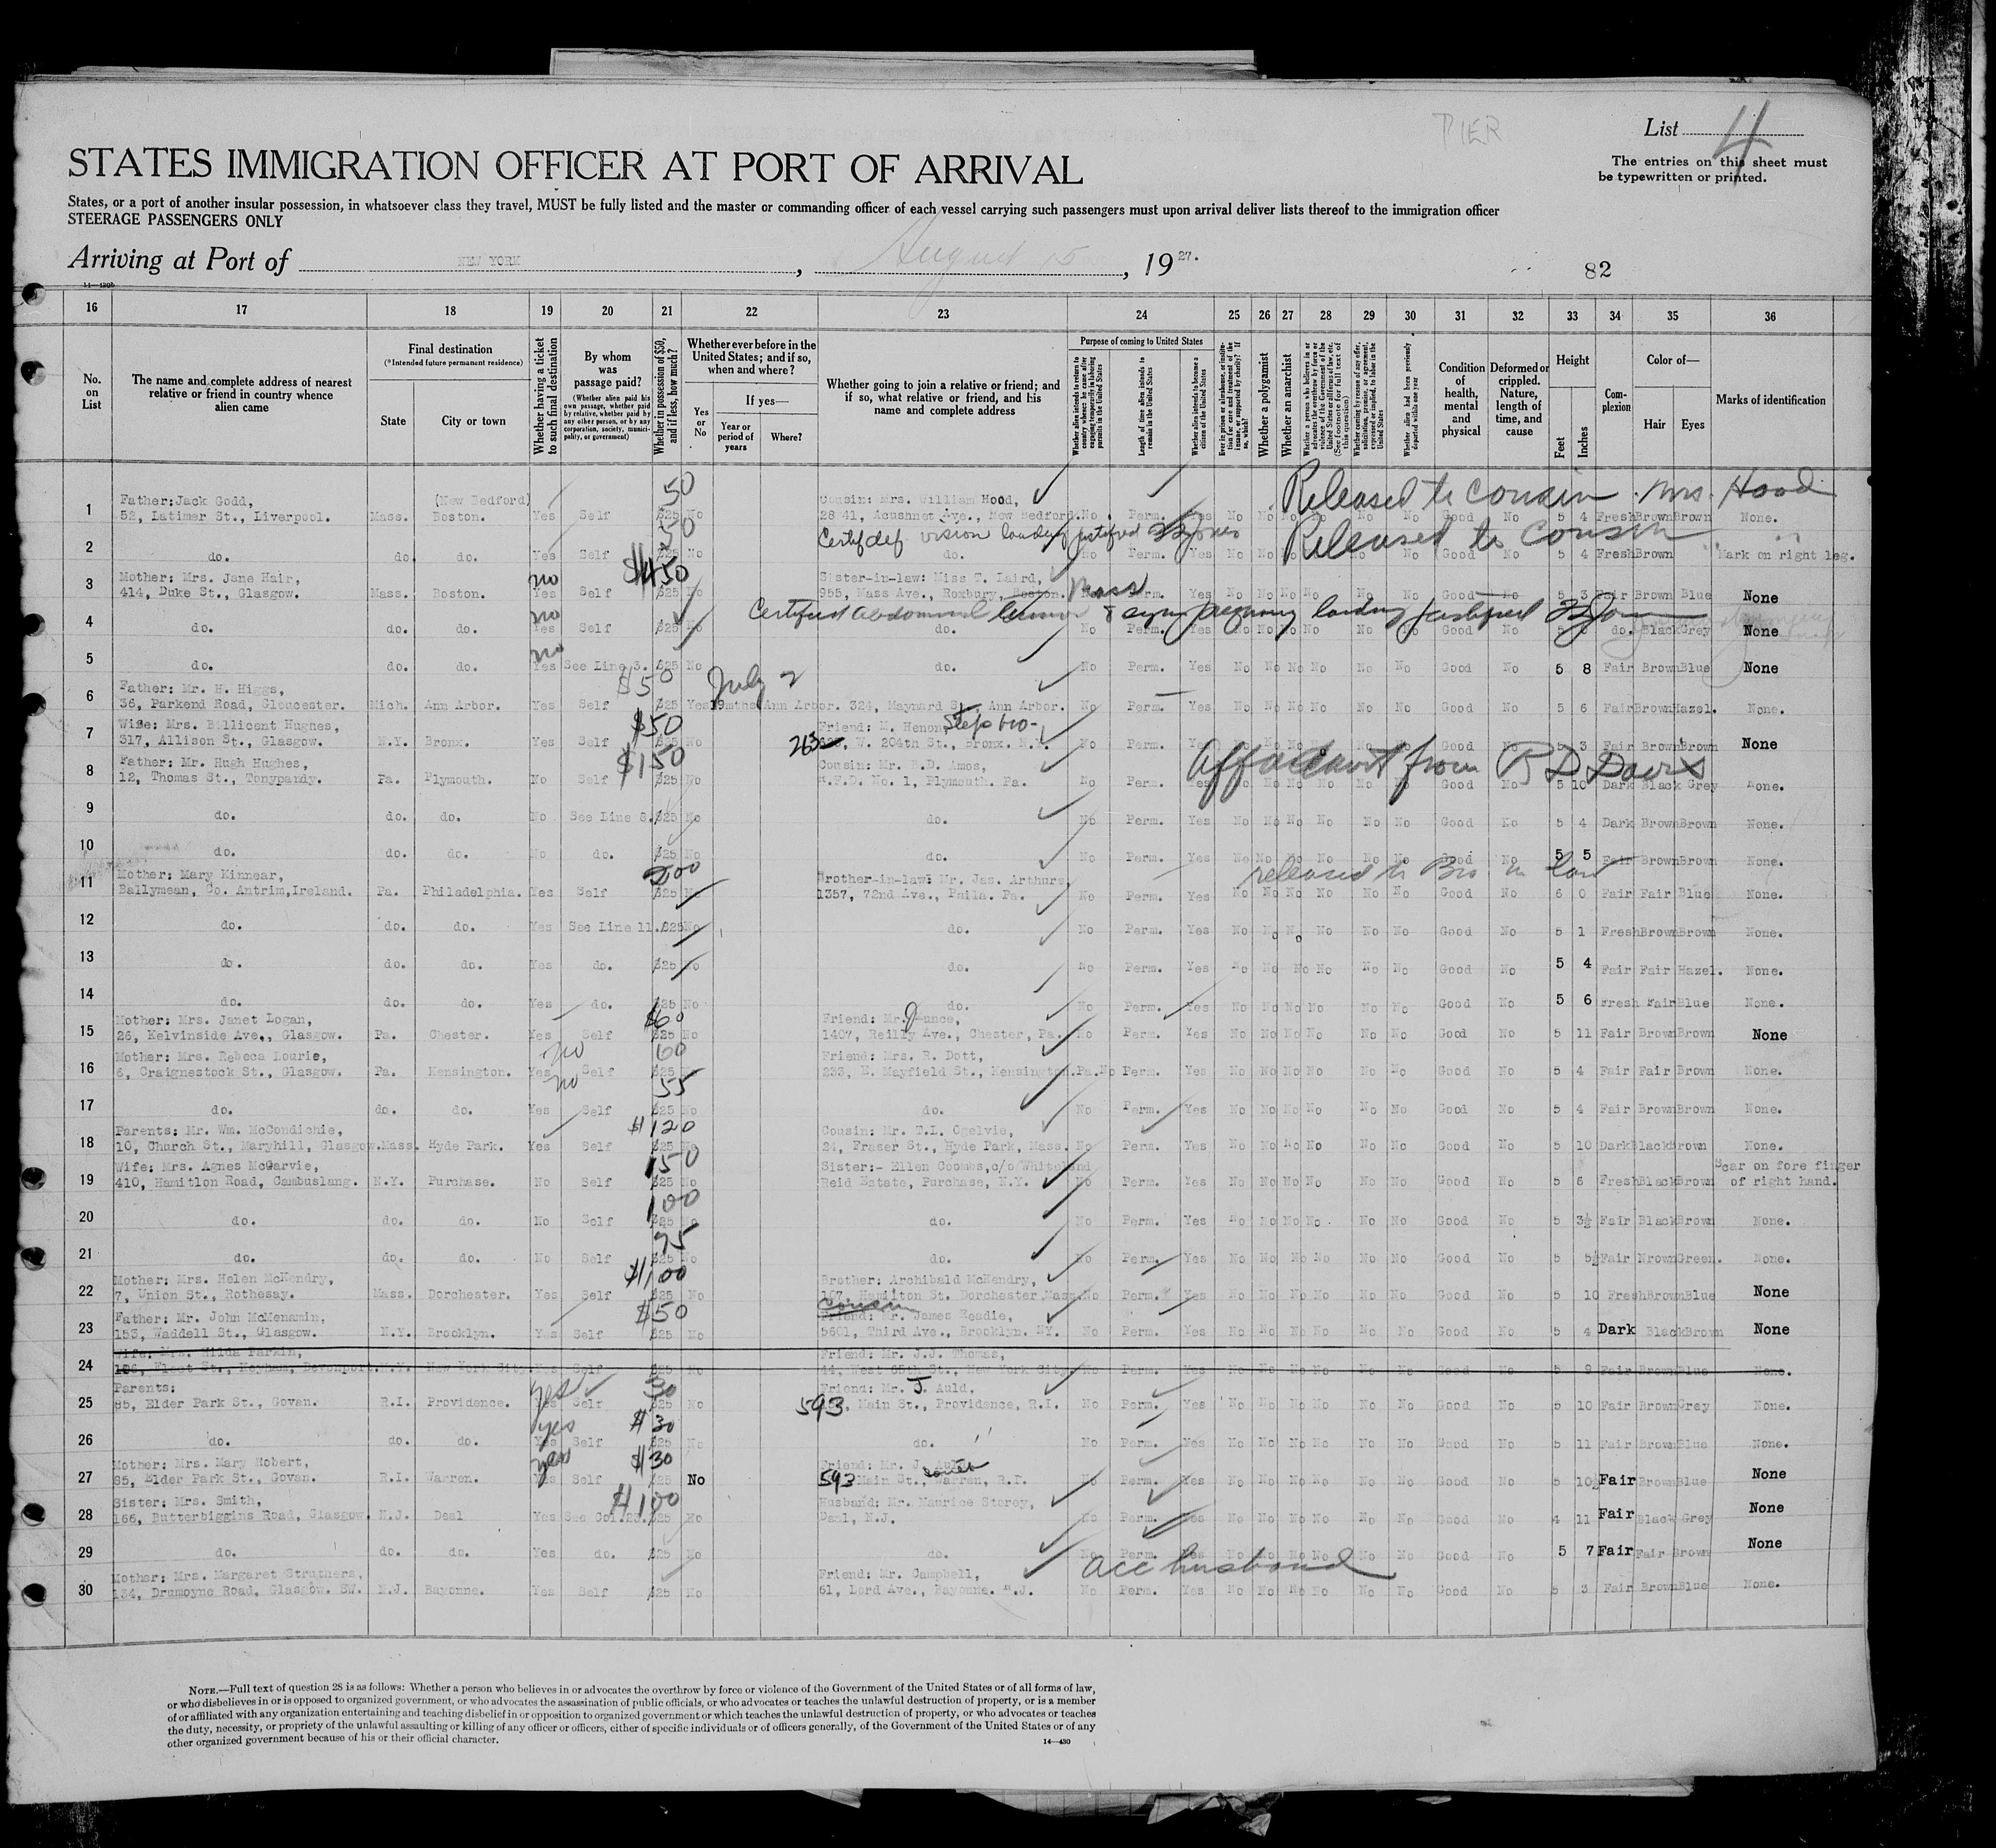 PIER
List 4
The entries on this sheet must
be typewritten or printed.
STATES IMMIGRATION OFFICER AT PORT OF ARRIVAL
States, or a port of another insular possession, in whatsoever class they travel, MUST be fully listed and the master or commanding officer of each vessel carrying such passengers must upon arrival deliver lists thereof to the immigration officer
STEERAGE PASSENGERS ONLY
Arriving at Port of NEW YORK, August 15, 1927.
82
16 17 18 19 20 21 22 23 24 25 26 27 28 29 30 31 32 33 34 35 36
No. on List
The name and complete address of nearest relative or friend in country whence alien came
Final destination
(*Intended future permanent residence)
State
City or town
Whether having a ticket to such final destination
By whom was passage paid?
(Whether alien paid his own passage, whether paid by relative, whether paid by any other person, or by any corporation, society, municipality, or government)
Whether in possession of $50, and if less, how much?
Whether ever before in the United States; and if so, when and where?
Yes or No
If yes—
Year or period of years
Where?
Whether going to join a relative or friend; and if so, what relative or friend, and his name and complete address
Purpose of coming to United States
Length of time alien intends to remain in the United States
Whether alien intends to become a citizen of the United States
Whether a polygamist
Whether an anarchist
Condition of health, mental and physical
Deformed or crippled. Nature, length of time, and cause
Height
Feet
Inches
Complexion
Color of—
Hair
Eyes
Marks of identification
50 Released to cousin Mrs. Hood
1 Father: Jack Godd, (New Bedford) Cousin: Mrs. William Hood,
52, Latimer St., Liverpool. Mass. Boston. Yes Self $25 No 28 41, Acushnet Ave., New Bedford. No Perm. Yes No No No No No No Good No 5 4 Fresh Brown Brown None.
50 Certif def vision landing justified Released to Cousin
2 do. do. do. Yes Self $25 No do. No Perm. Yes No No No No Good No 5 4 Fresh Brown Mark on right leg.
no $450
3 Mother: Mrs. Jane Hair, Sister-in-law: Miss T. Laird, Mass
414, Duke St., Glasgow. Mass. Boston. Yes Self $25 No 955, Mass Ave., Roxbury, Boston. Perm. Yes No No No No No No Good No 5 3 Fair Brown Blue None
no Certified abdominal landing justified
4 do. do. do. Yes Self $25 No do. No Perm. Yes No No No No No No Good No 5 do. Black Grey None
no
5 do. do. do. Yes See Line 3. $25 No do. No Perm. Yes No No No No No No Good No 5 8 Fair Brown Blue None
$50 July
6 Father: Mr. H. Higgs,
36, Parkend Road, Gloucester. Mich. Ann Arbor. Yes Self $25 Yes 19mths Ann Arbor. 324, Maynard St., Ann Arbor. No Perm. Yes No No No No No No Good No 5 6 Fair Brown Hazel. None.
$50
7 Wife: Mrs. Billicent Hughes, Friend: M. Henon, Step bro-
317, Allison St., Glasgow. N.Y. Bronx. Yes Self $25 No 263 W. 204th St., Bronx. N.Y. No Perm. Yes No No No No No No Good No 5 3 Fair Brown Brown None
$150 Affadavit from
8 Father: Mr. Hugh Hughes, Cousin: Mr. B.D. Amos,
12, Thomas St., Tonypandy. Pa. Plymouth. No Self $25 No R.F.D. No. 1, Plymouth. Pa. No Perm. Yes No No No No No No Good No 5 10 Dark Black Grey None.
9 do. do. do. No See Line 8. $25 No do. No Perm. Yes No No No No No No Good No 5 4 Dark Brown Brown None.
10 do. do. do. No do. $25 No do. No Perm. Yes No No No No No No Good No 5 5 Fair Brown Brown None.
200 released to Bro in law
11 Mother: Mary Kinnear, Brother-in-law: Mr. Jas. Arthurs,
Ballymean, Co. Antrim, Ireland. Pa. Philadelphia. Yes Self $25 No 1357, 72nd Ave., Phila. Pa. No Perm. Yes No No No No No No Good No 6 0 Fair Fair Blue None.
12 do. do. do. Yes See Line 11. $25 No do. No Perm. Yes No No No No No No Good No 5 1 Fresh Brown Brown None.
13 do. do. do. Yes do. $25 No do. No Perm. Yes No No No No No No Good No 5 4 Fair Fair Hazel. None.
14 do. do. do. Yes do. $25 No do. No Perm. Yes No No No No No No Good No 5 6 Fresh Fair Blue None.
$60
15 Mother: Mrs. Janet Logan, Friend: Mr.
26, Kelvinside Ave., Glasgow. Pa. Chester. Yes Self $25 No 1407, Reilly Ave., Chester, Pa. No Perm. Yes No No No No No No Good No 5 11 Fair Brown Brown None
no 60
16 Mother: Mrs. Rebeca Lourie, Friend: Mrs. R. Dott,
6, Craignestock St., Glasgow. Pa. Kensington. Yes Self $25 No 233, E. Mayfield St., Kensington. Pa. No Perm. Yes No No No No No No Good No 5 4 Fair Fair Brown None.
no 55
17 do. do. do. Yes Self $25 No do. No Perm. Yes No No No No No No Good No 5 4 Fair Brown Brown None.
$120
18 Parents: Mr. Wm. McCondichie, Cousin: Mr. T.L. Ogelvie,
10, Church St., Maryhill, Glasgow. Mass. Hyde Park. Yes Self $25 No 24, Fraser St., Hyde Park, Mass. No Perm. Yes No No No No No No Good No 5 10 Dark Black Brown None.
150
19 Wife: Mrs. Agnes McGarvie, Sister:- Ellen Coombs, c/o Whiteland Scar on fore finger
410, Hamitlon Road, Cambuslang. N.Y. Purchase. No Self $25 No Reid Estate, Purchase, N.Y. No Perm. Yes No No No No No No Good No 5 6 Fresh Black Brown of right hand.
100
20 do. do. do. No Self $25 No do. No Perm. Yes No No No No No No Good No 5 3½ Fair Black Brown None.
75
21 do. do. do. No Self $25 No do. No Perm. Yes No No No No No No Good No 5 5½ Fair Nrown Green. None.
$100
22 Mother: Mrs. Helen McKendry, Brother: Archibald McKendry,
7, Union St., Rothesay. Mass. Dorchester. Yes Self $25 No 107, Hamilton St. Dorchester Mass. No Perm. Yes No No No No No No Good No 5 10 Fresh Brown Blue None
$50 cousin
23 Father: Mr. John McMenamin, Friend: Mr. James Readie,
153, Waddell St., Glasgow. N.Y. Brooklyn. Yes Self $25 No 5601, Third Ave., Brooklyn. NY. No Perm. Yes No No No No No No Good No 5 4 Dark Black Brown None
24 Wife: Mrs. Hilda Parkin, Friend: Mr. J.J. Thomas,
Fleet St., Keyham, Devonport. N.Y. New York City. Yes Self $25 No 14, West 65th St., New York City. No Perm. Yes No No No No No No Good No 5 9 Fair Brown Blue None.
yes 30
25 Parents: Friend: Mr. J. Auld,
85, Elder Park St., Govan. R.I. Providence. Yes Self $25 No 593, Main St., Providence, R.I. No Perm. Yes No No No No No No Good No 5 10 Fair Brown Grey None.
yes $30
26 do. do. do. Yes Self $25 No do. No Perm. Yes No No No No No No Good No 5 11 Fair Brown Blue None.
yes $30
27 Mother: Mrs. Mary Robert, Friend: Mr. J. Auld
85, Elder Park St., Govan. R.I. Warren. Yes Self $25 No 593 Main St., Warren, R.I. No Perm. Yes No No No No No No Good No 5 10½ Fair Brown Blue None
$100
28 Sister: Mrs. Smith, Husband: Mr. Maurice Storey,
166, Butterbiggins Road, Glasgow. N.J. Deal Yes See Col. 23. $25 No Deal, N.J. No Perm. Yes No No No No No No Good No 4 11 Fair Black Grey None
29 do. do. do. Yes do. $25 No do. No Perm. Yes No No No No No No Good No 5 7 Fair Fair Brown None
acc husband
30 Mother: Mrs. Margaret Struthers, Friend: Mr. Campbell,
134, Drumoyne Road, Glasgow. SW. N.J. Bayonne. Yes Self $25 No 51, Lord Ave., Bayonne. N.J. No Perm. Yes No No No No No No Good No 5 3 Fair Brown Blue None.
NOTE.—Full text of question 28 is as follows: Whether a person who believes in or advocates the overthrow by force or violence of the Government of the United States or of all forms of law,
or who disbelieves in or is opposed to organized government, or who advocates the assassination of public officials, or who advocates or teaches the unlawful destruction of property, or is a member
of or affiliated with any organization entertaining and teaching disbelief in or opposition to organized government or which teaches the unlawful destruction of property, or who advocates or teaches
the duty, necessity, or propriety of the unlawful assaulting or killing of any officer or officers, either of specific individuals or of officers generally, of the Government of the United States or of any
other organized government because of his or their official character.
14—430